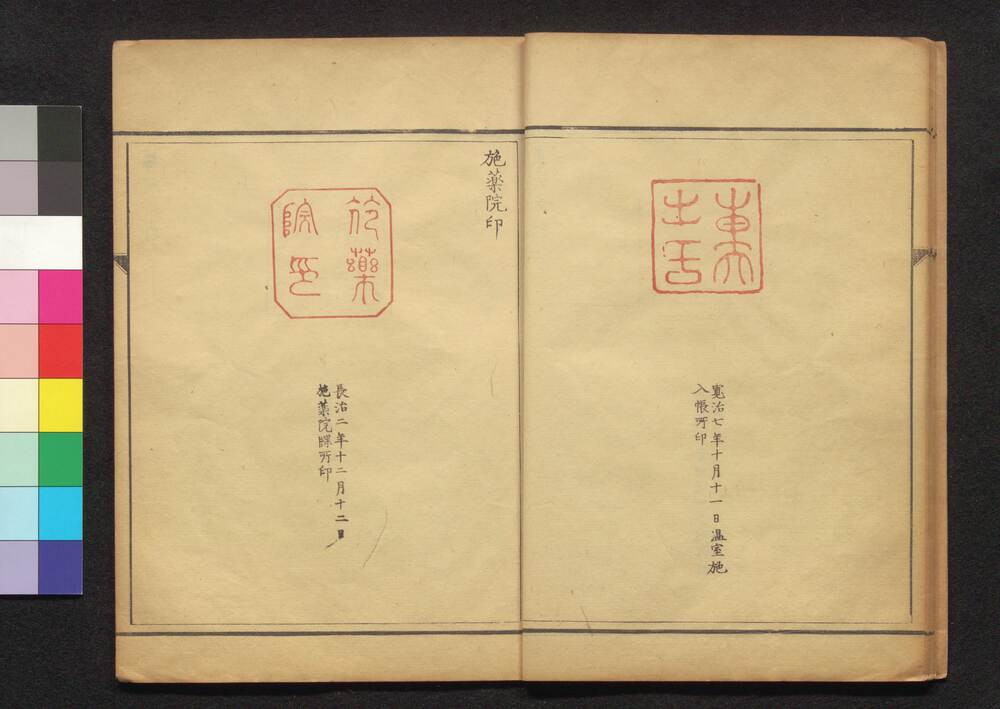 東大
寛治七年十月十一日温室施
入帳所印
施藥院印
施藥
院印
長治二年十二月十二日
施藥院牒所印